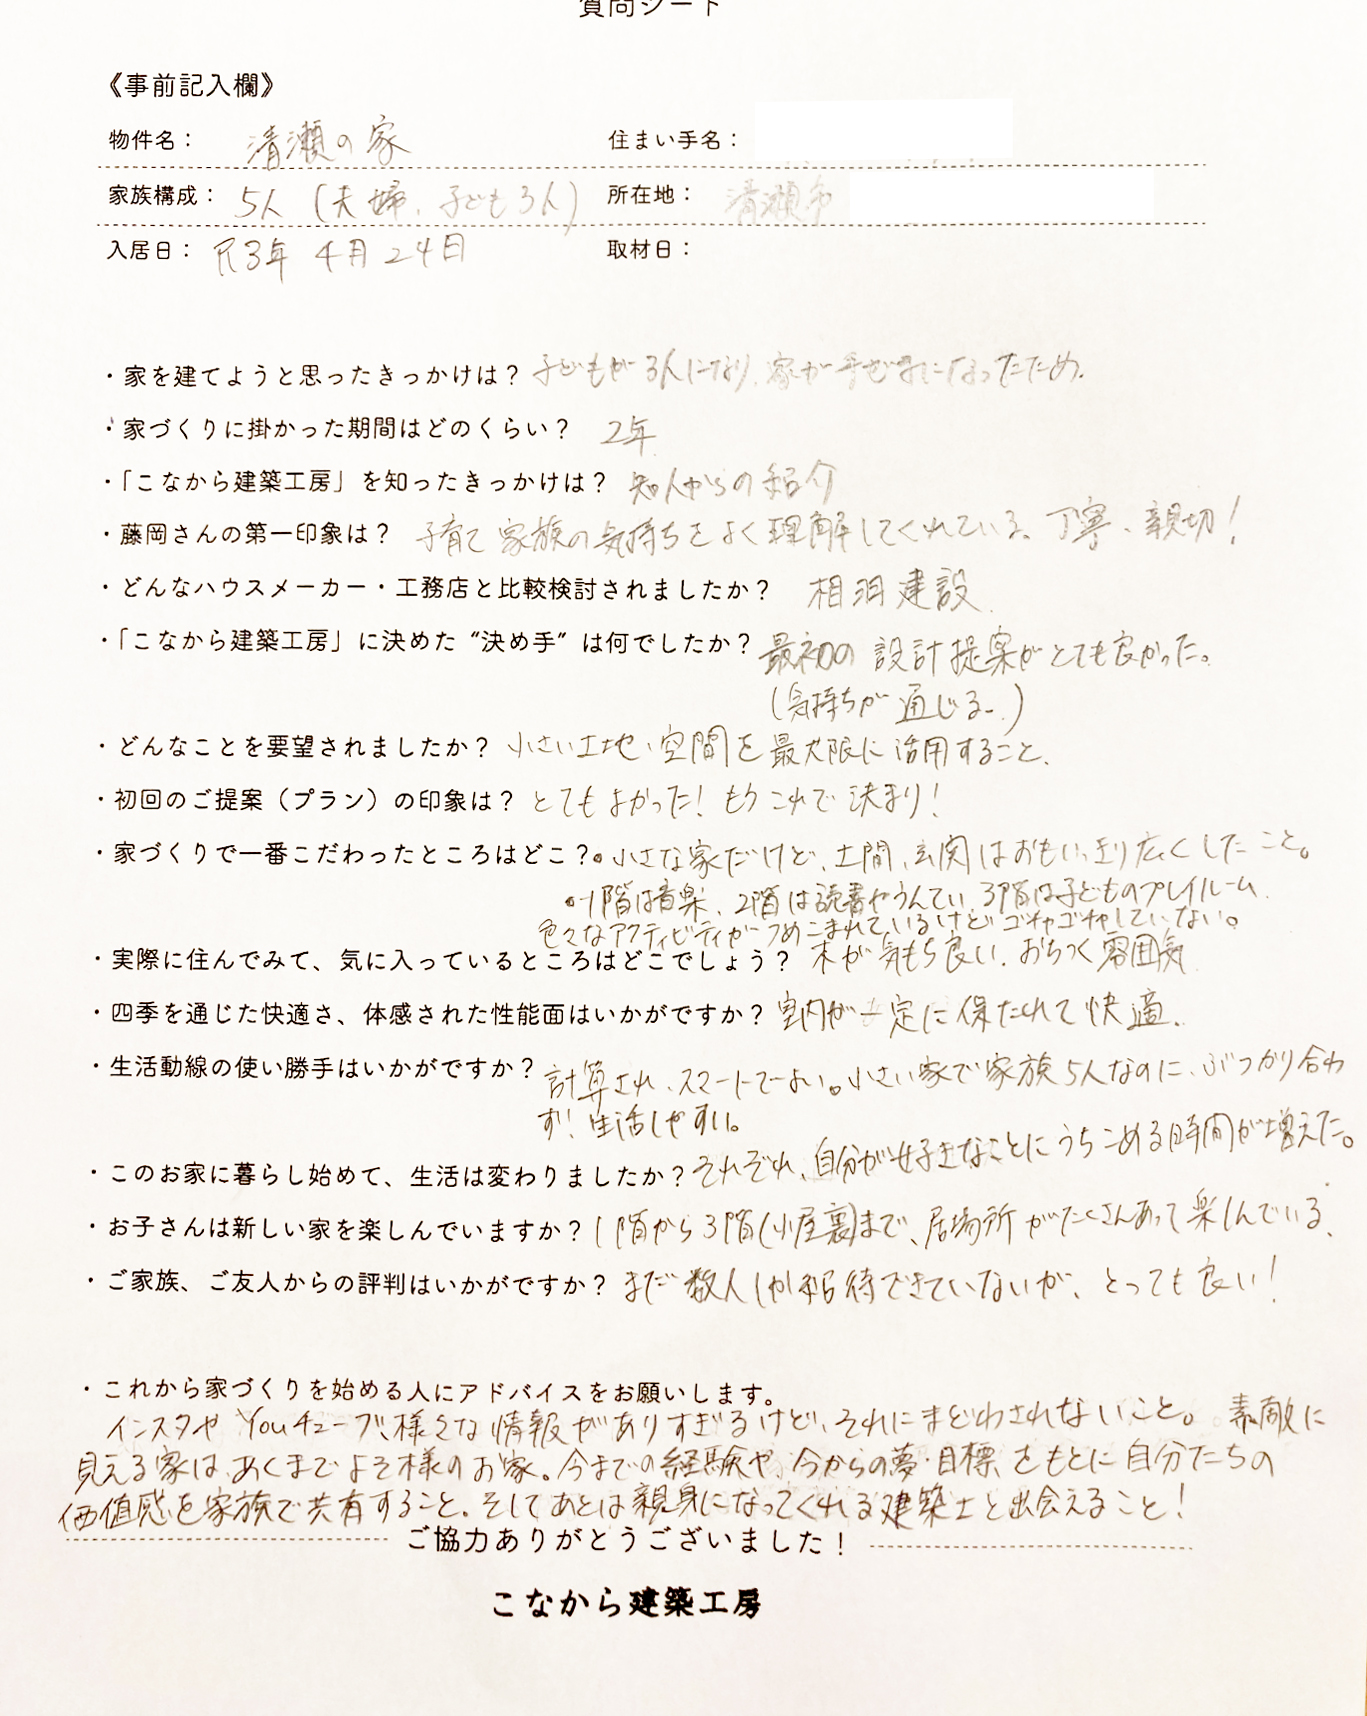 質問シート
《事前記入欄》
物件名： 清瀬の家 住まい手名：
家族構成： 5人 (夫婦、子ども3人) 所在地： 清瀬市
入居日： R3年 4月24日 取材日：
・家を建てようと思ったきっかけは？ 子どもが3人になり、家が手ぜまになったため。
・家づくりに掛かった期間はどのくらい？ 2年
・「こなから建築工房」を知ったきっかけは？ 知人からの紹介
・藤岡さんの第一印象は？ 子育て家族の気持ちをよく理解してくれている。丁寧、親切！
・どんなハウスメーカー・工務店と比較検討されましたか？ 相羽建設
・「こなから建築工房」に決めた“決め手”は何でしたか？ 最初の設計提案がとても良かった。
(気持ちが通じる-)
・どんなことを要望されましたか？ 小さい土地、空間を最大限に活用すること。
・初回のご提案（プラン）の印象は？ とてもよかった！もうこれで決まり！
・家づくりで一番こだわったところはどこ？ ・小さな家だけど、土間、玄関はおもいっきり広くしたこと。
・1階は音楽、2階は読書やうんてい、3階は子どものプレイルーム
色々なアクティビティがつめこまれているけどゴチャゴチャしていない。
・実際に住んでみて、気に入っているところはどこでしょう？ 木が気もち良い。おちつく雰囲気
・四季を通じた快適さ、体感された性能面はいかがですか？ 室内が一定に保たれて快適。
・生活動線の使い勝手はいかがですか？ 計算され、スマートでよい。小さい家で家族5人なのに、ぶつかり合わ
ず！生活しやすい。
・このお家に暮らし始めて、生活は変わりましたか？ それぞれ、自分が好きなことにうちこめる時間が増えた。
・お子さんは新しい家を楽しんでいますか？ 1階から3階(小屋裏)まで、居場所がたくさんあって楽しんでいる。
・ご家族、ご友人からの評判はいかがですか？ まだ数人しか招待できていないが、とっても良い！
・これから家づくりを始める人にアドバイスをお願いします。
インスタやYouチューブ、様々な情報がありすぎるけど、それにまどわされないこと。素敵に
見える家は、あくまでよそ様のお家。今までの経験や、今からの夢・目標をもとに自分たちの
価値感を家族で共有すること。そしてあとは親身になってくれる建築士と出会えること！
ご協力ありがとうございました！
こなから建築工房